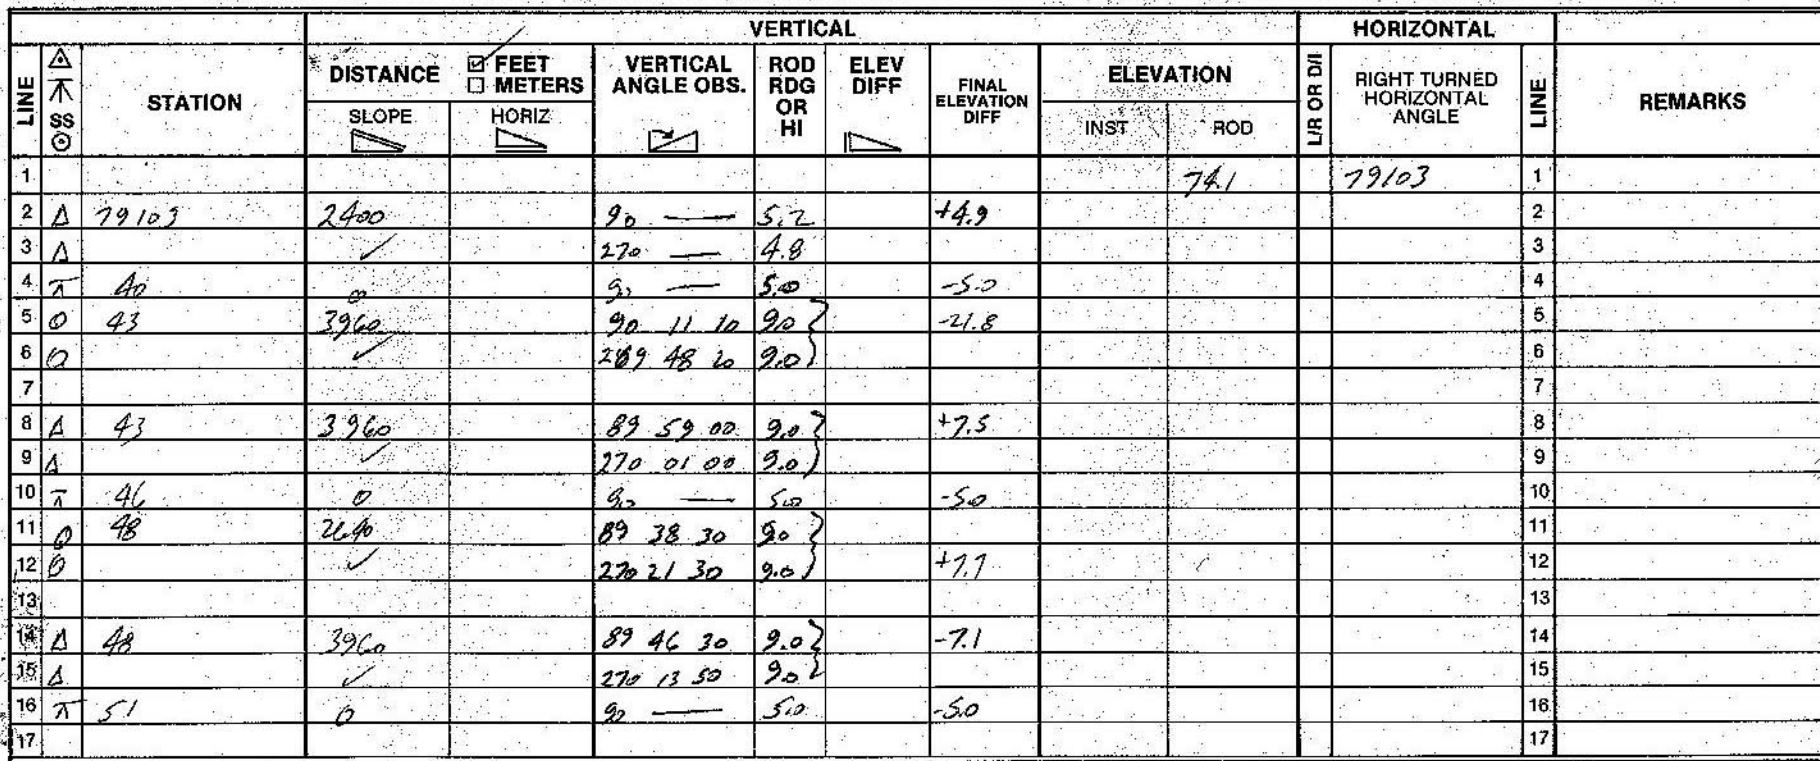 VERTICAL HORIZONTAL
LINE SS STATION DISTANCE ☑ FEET ☐ METERS SLOPE HORIZ VERTICAL ANGLE OBS. ROD RDG OR HI ELEV DIFF FINAL ELEVATION DIFF ELEVATION INST ROD L/R OR D/I RIGHT TURNED HORIZONTAL ANGLE LINE REMARKS
1 74.1 79103 1
2 Δ 79103 2400 90 — 5.2 +4.9 2
3 Δ ✓ 270 — 4.8 3
4 40 0 90 — 5.0 -5.0 4
5 43 3960 90 11 10 9.0 -21.8 5
6 ✓ 269 48 20 9.0 6
7 7
8 Δ 43 3960 89 59 00 9.0 +7.5 8
9 Δ ✓ 270 01 00 9.0 9
10 46 0 90 — 5.0 -5.0 10
11 48 2640 89 38 30 9.0 11
12 ✓ 270 21 30 9.0 +7.7 12
13 13
14 Δ 48 3960 89 46 30 9.0 -7.1 14
15 Δ ✓ 270 13 50 9.0 15
16 51 0 90 — 5.0 -5.0 16
17 17